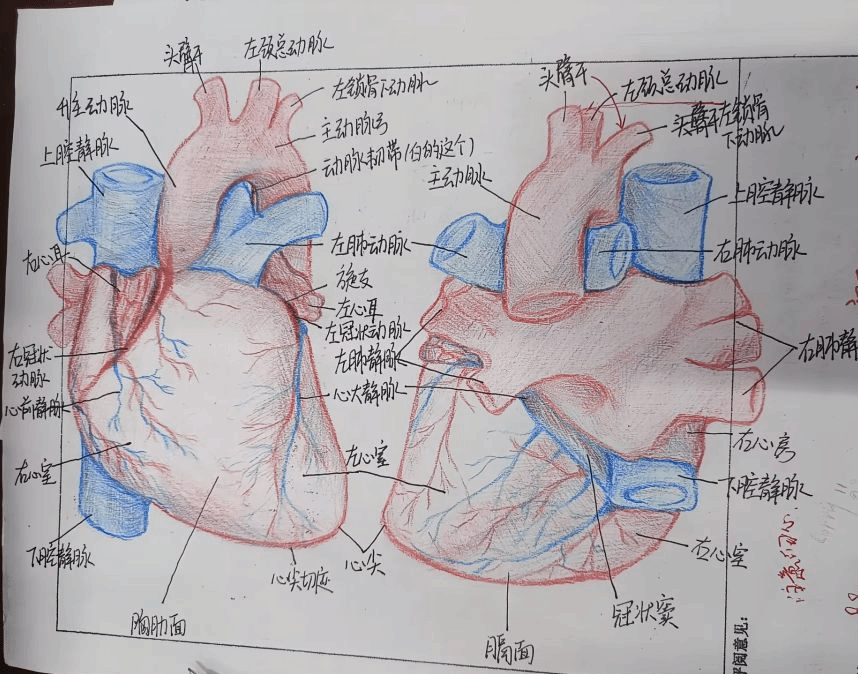 头臂干
左颈总动脉
左锁骨下动脉
升主动脉
主动脉弓
上腔静脉
动脉韧带(白的这个)
左肺动脉
右心耳
旋支
左心耳
左冠状动脉
右冠状
动脉
左肺静脉
心前静脉
心大静脉
右心室
左心室
下腔静脉
心尖切迹
心尖
胸肋面
头臂干
左颈总动脉
头臂干左锁骨
下动脉
主动脉
上腔静脉
右肺动脉
右肺静
右心房
下腔静脉
右心室
冠状窦
膈面
评阅意见: